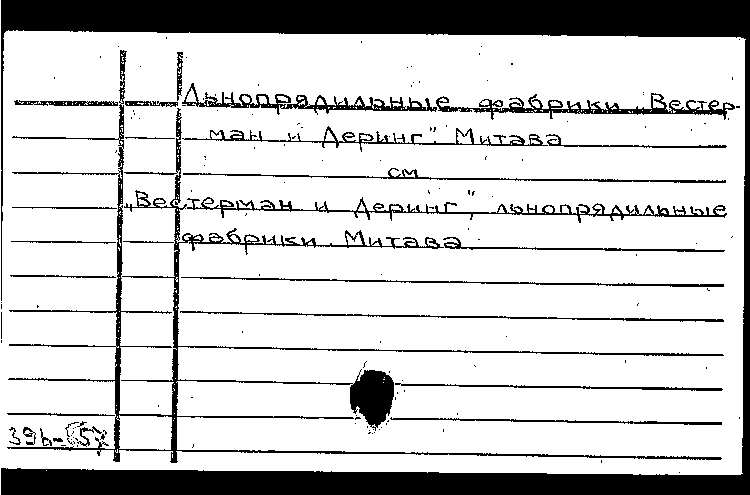 Льнопрядильные фабрики „Вестер-
ман и Деринг". Митава
см
„Вестерман и Деринг", льнопрядильные
фабрики. Митава